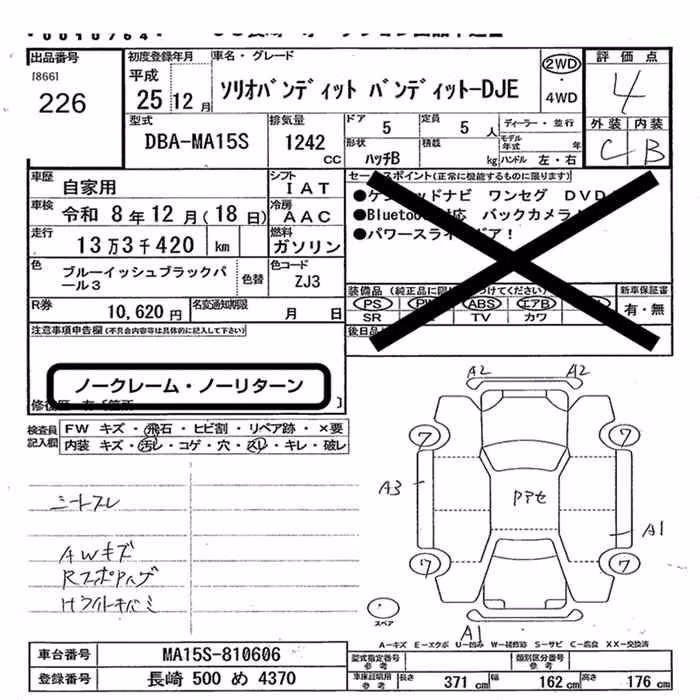 出品番号
[866]
226
初度登録年月
平成
25年12月
車名・グレード
ソリオバンディット バンディットーDJE
2WD
・
4WD
評価点
4
外装 内装
C B
型式
DBA-MA15S
排気量
1242
CC
ドア
5
定員
5 人
形状
ハッチB
積載
kg
ディーラー・並行
モデル年式 年
ハンドル 左・右
車歴
自家用
シフト
IAT
車検
令和 8年12月(18日)
冷房
AAC
走行
13万3千420 km
燃料
ガソリン
色
ブルーイッシュブラックパール3
色替
色コード
ZJ3
R券
10,620円
名変通知期限
月 日
セールスポイント(正常に機能するものに限ります)
ワンセグ DVD
●Bluetooth対応 バックカメラ!
●パワースライドドア!
装備品
PS ABS エアB
SR TV カワ
新車保証書
有・無
注意事項申告欄(不具合内容等は具体的に記入して下さい)
ノークレーム・ノーリターン
検査員記入欄
FW キズ・飛石・ヒビ割・リペア跡・×要
内装 キズ・汚レ・コゲ・穴・スレ・キレ・破レ
シートスレ
AWキズ
RスポPハゲ
Hライトキバミ
A2 A2
ワ ワ
A3
PPアセ
A1
ワ ワ
スペア
A1
A-キズ E-エクボ U-凹み W-補修跡 S-サビ C-腐食 XX-交換済
車台番号
MA15S-810606
登録番号
長崎 500 め 4370
型式指定番号
参考
類別区分番号
参考
車庫証明用
参考
長さ
371 cm
幅
162 cm
高さ
176 cm